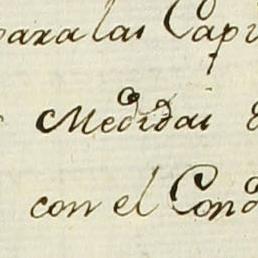 para las Cap
Medidas
con el Con